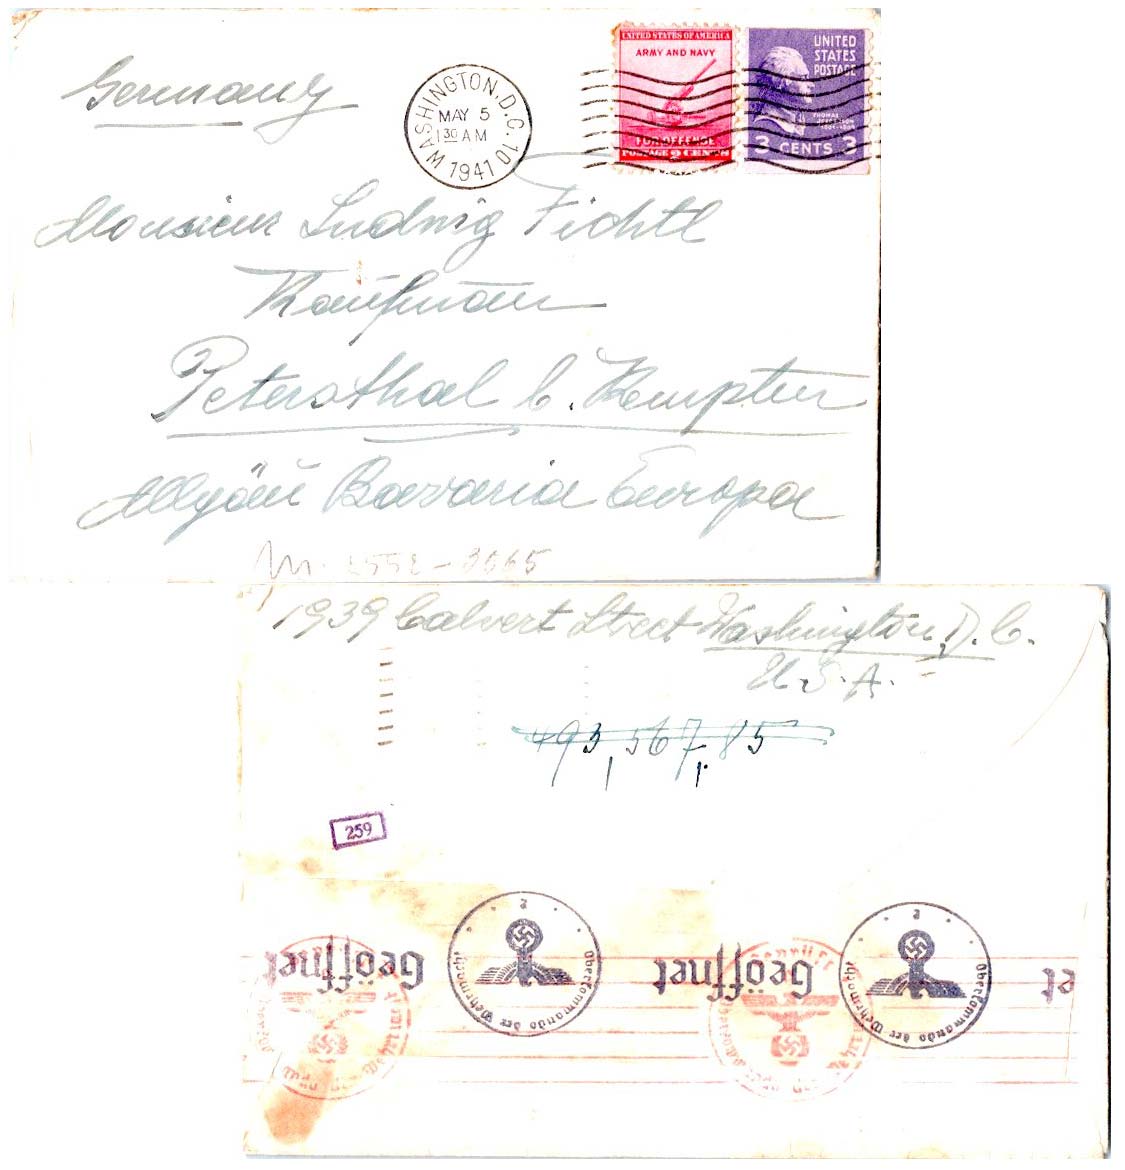 Germany
WASHINGTON, D.C. 10
MAY 5
1 30 AM
1941
UNITED STATES OF AMERICA
ARMY AND NAVY
FOR DEFENSE
POSTAGE 2 CENTS
UNITED
STATES
POSTAGE
THOMAS
JEFFERSON
3 CENTS 3
Monsieur Ludwig Fichtl
Kaufman
Petersthal b. Kempten
Allgäu Bavaria Europa
1939 Calvert Street Washington, D. C.
U. S. A.
493,567,85
259
Geöffnet
Oberkommando der Wehrmacht
Geöffnet
Oberkommando der Wehrmacht
et